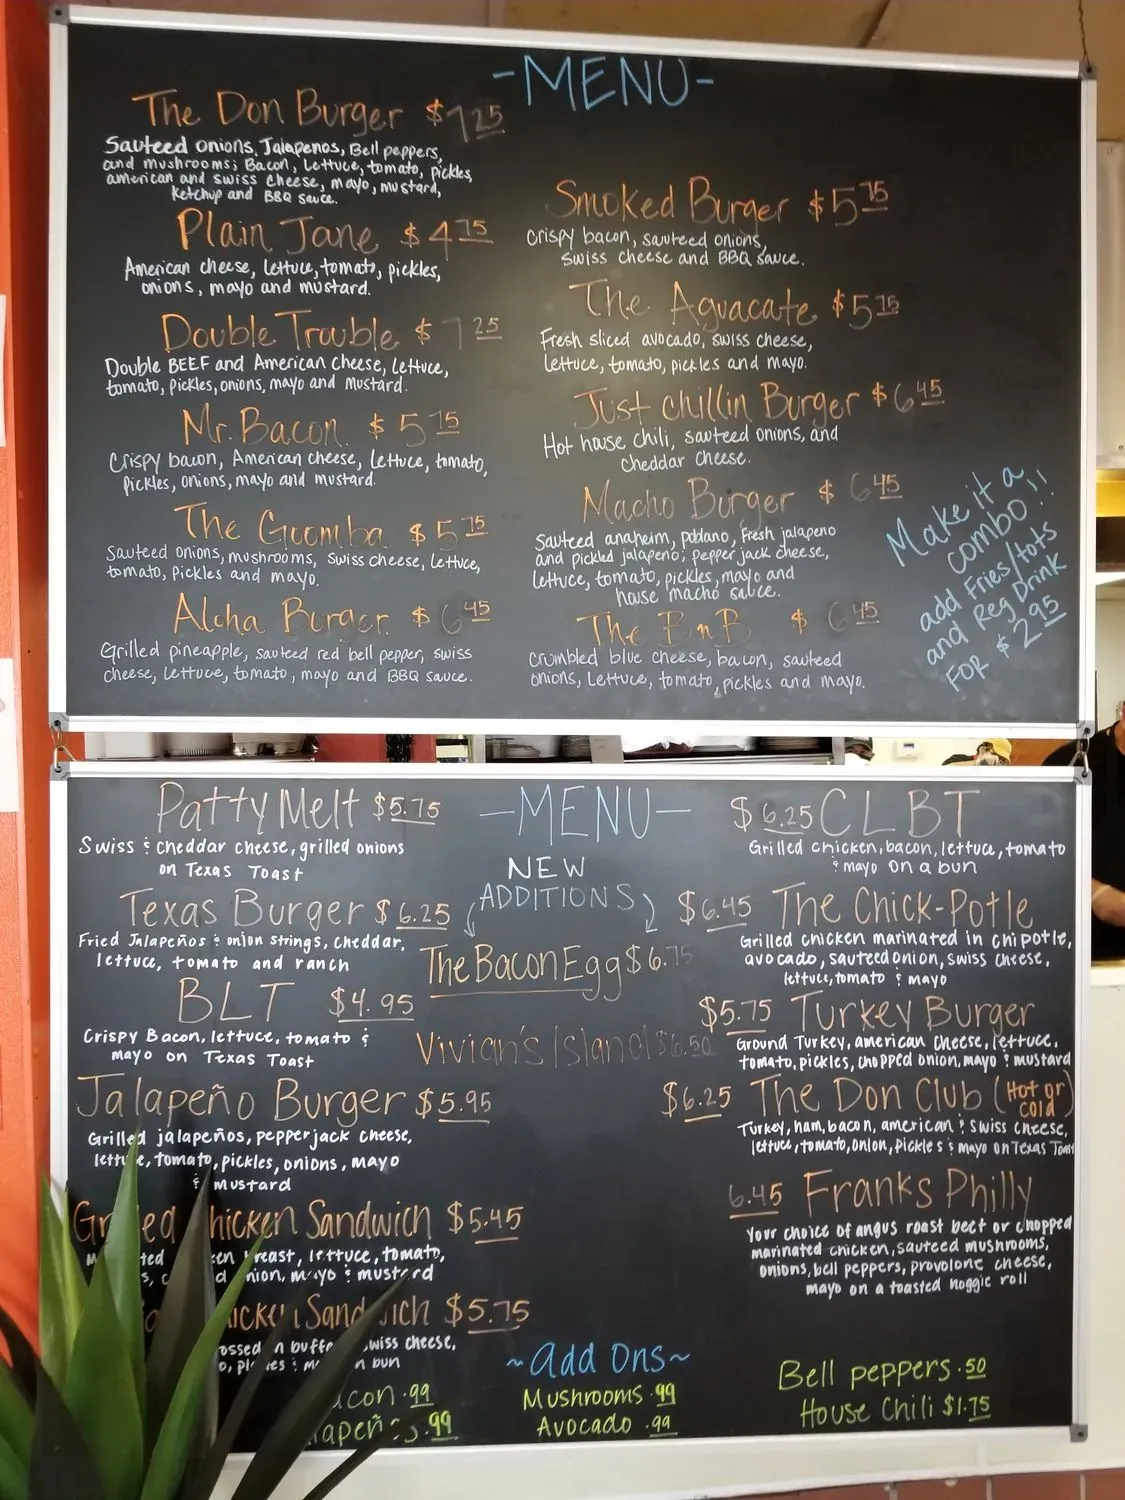 -MENU-
The Don Burger $7.25
Sauteed onions, Jalapenos, Bell peppers,
and mushrooms; Bacon, Lettuce, tomato, pickles,
american and swiss cheese, mayo, mustard,
ketchup and BBQ sauce.
Plain Jane $4 75
American cheese, lettuce, tomato, pickles,
onions, mayo and mustard.
Double Trouble $7 25
Double BEEF and American cheese, lettuce,
tomato, pickles, onions, mayo and mustard.
Mr. Bacon $5 75
Crispy bacon, American cheese, lettuce, tomato,
pickles, onions, mayo and mustard.
The Goomba $5 75
Sauteed onions, mushrooms, swiss cheese, lettuce,
tomato, pickles and mayo.
Aloha Burger $6 45
Grilled pineapple, sauteed red bell pepper, swiss
cheese, lettuce, tomato, mayo and BBQ sauce.
Smoked Burger $5 75
Crispy bacon, sauteed onions,
swiss cheese and BBQ sauce.
The Aguacate $5 75
Fresh sliced avocado, swiss cheese,
lettuce, tomato, pickles and mayo.
Just chillin Burger $6 45
Hot house chili, sauteed onions, and
cheddar cheese.
Macho Burger $6 45
Sauteed anaheim, poblano, Fresh jalapeno
and pickled jalapeno; pepper jack cheese,
lettuce, tomato, pickles, mayo and
house macho sauce.
The BnB $6 45
Crumbled blue cheese, bacon, sauteed
onions, Lettuce, tomato, pickles and mayo.
Make it a
combo!!
add Fries/tots
and Reg Drink
FOR $2.95
-MENU-
NEW
ADDITIONS
The Bacon Egg $6.75
Vivian's Island $6.50
Patty Melt $5.75
Swiss & cheddar cheese, grilled onions
on Texas Toast
Texas Burger $6.25
Fried Jalapeños & onion strings, cheddar,
lettuce, tomato and ranch
BLT $4.95
Crispy Bacon, lettuce, tomato &
mayo on Texas Toast
Jalapeño Burger $5.95
Grilled jalapeños, pepperjack cheese,
lettuce, tomato, pickles, onions, mayo
& mustard
Chicken Sandwich $5.45
breast, lettuce, tomato,
onion, mayo & mustard
Sandwich $5.75
in buff swiss cheese,
bun
$6.25 CLBT
Grilled chicken, bacon, lettuce, tomato
& mayo on a bun
$6.45 The Chick-Potle
Grilled chicken marinated in chipotle,
avocado, sauteed onion, swiss cheese,
lettuce, tomato & mayo
$5.75 Turkey Burger
Ground Turkey, american cheese, lettuce,
tomato, pickles, chopped onion, mayo & mustard
$6.25 The Don Club (Hot or cold)
Turkey, ham, bacon, american & swiss cheese,
lettuce, tomato, onion, pickles & mayo on Texas Toast
6.45 Franks Philly
Your choice of angus roast beef or chopped
marinated chicken, sauteed mushrooms,
onions, bell peppers, provolone cheese,
mayo on a toasted hoggie roll
~Add Ons~
acon .99
.99
Mushrooms .99
Avocado .99
Bell peppers .50
House Chili $1.75